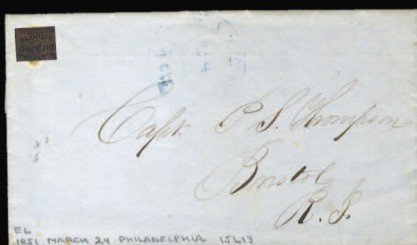 BLOOD'S
Capt. P. S. Thompson
Bristol
R. I.
EL
1851 MARCH 24 PHILADELPHIA 15L13